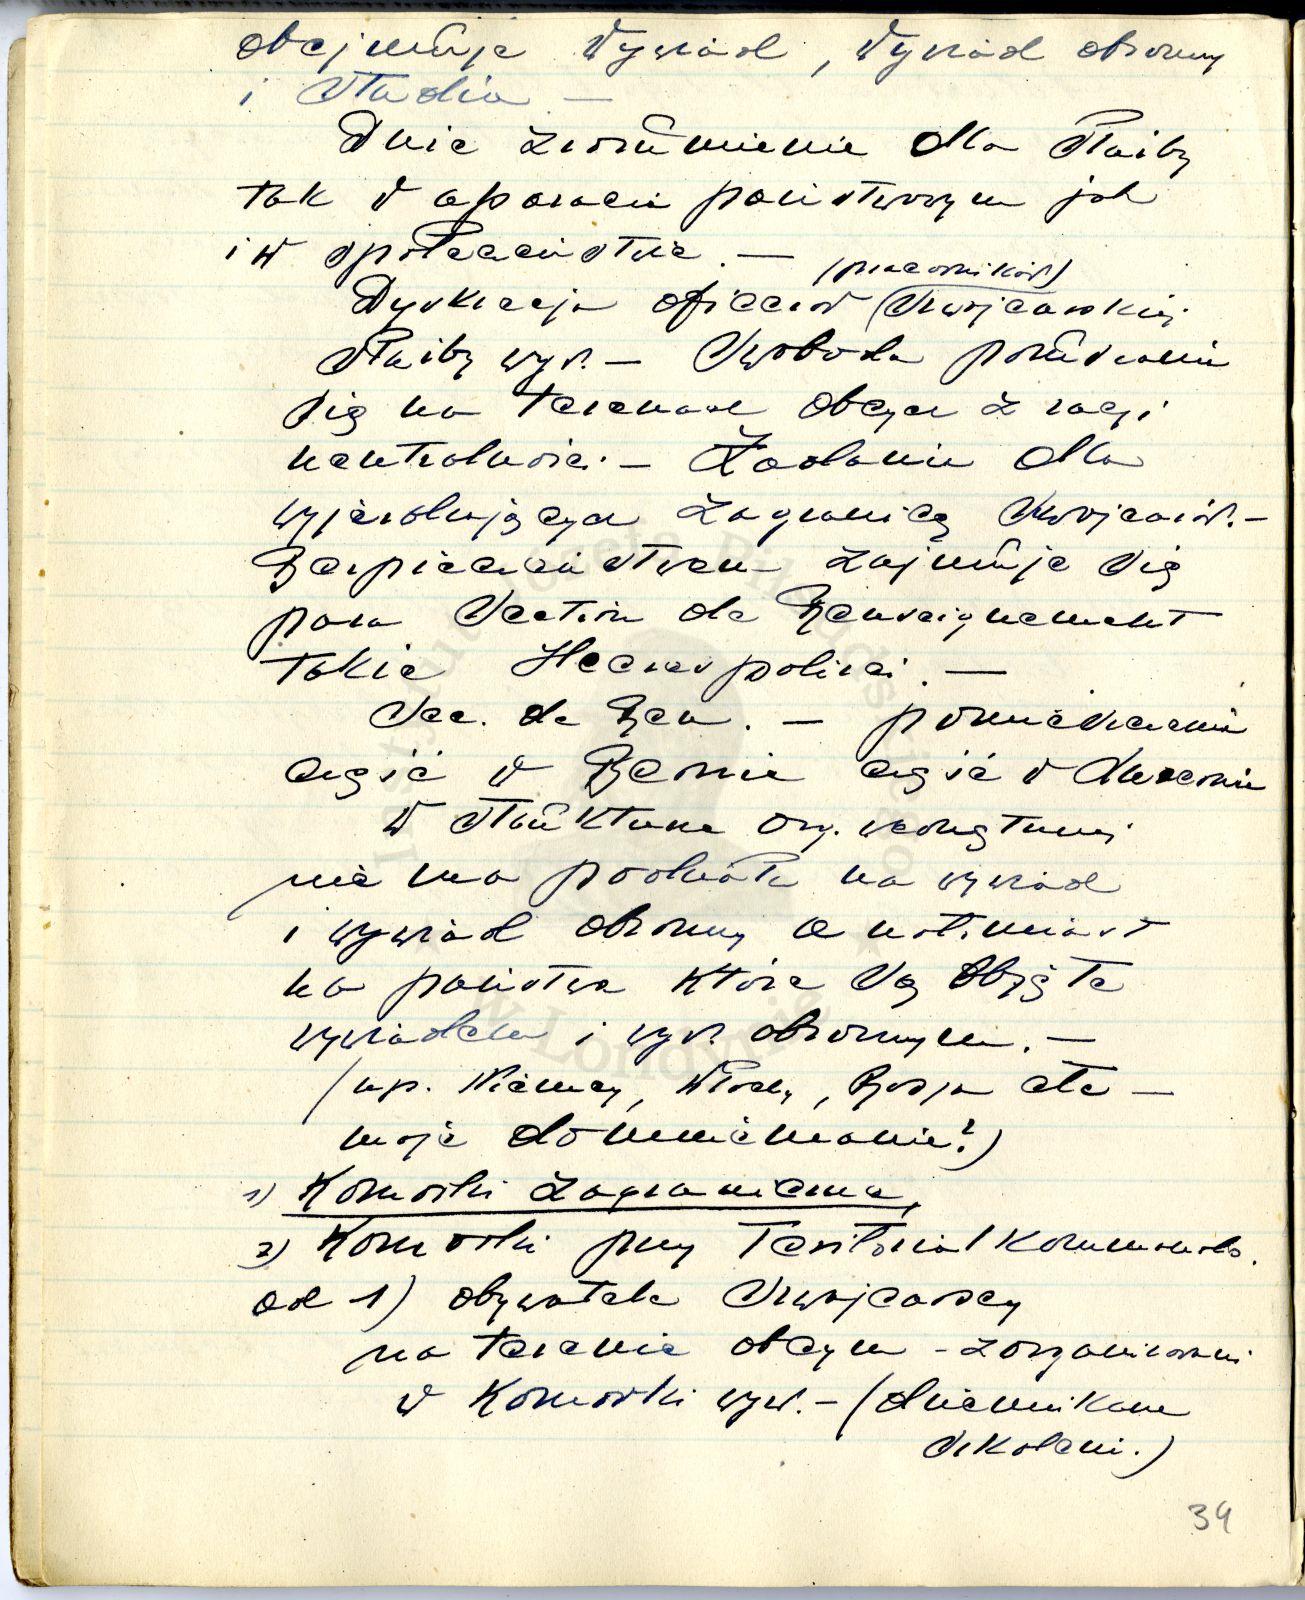 obejmuje wywiad, wywiad obronny
i studia —
Duże zrozumienie dla służby
tak w aparacie państwowym jak
i w społeczeństwie. —
(pracowników)
Dyskrecja oficerów (szwajcarskiej
służby wyw. — Swoboda poruszania
się na terenach obcych z racji
neutralności. — Zadanie dla
wyjeżdżających zagranicę Szwajcarów. —
Bezpieczeństwem zajmuje się
poza Section de Renseignement
także Heerespolizei. —
Sec. de Ren. — pomieszczenie
część w Bernie część w Luzernie
W strukturze org. wewnętrznej
nie ma podziału na wywiad
i wywiad obronny a natomiast
na państwa które są objęte
wywiadem i wyw. obronnym. —
(np. Niemcy, Włochy, Rosja etc —
moje domniemanie?)
1) Komórki zagraniczne,
2) Komórki przy Teritorialkommando.
ad 1) obywatele szwajcarscy
na terenie obcym - zorganizowani
w komórki wyw. — (dziennikarze
szkoleni.)
34
Instytut Józefa Piłsudskiego
w Londynie